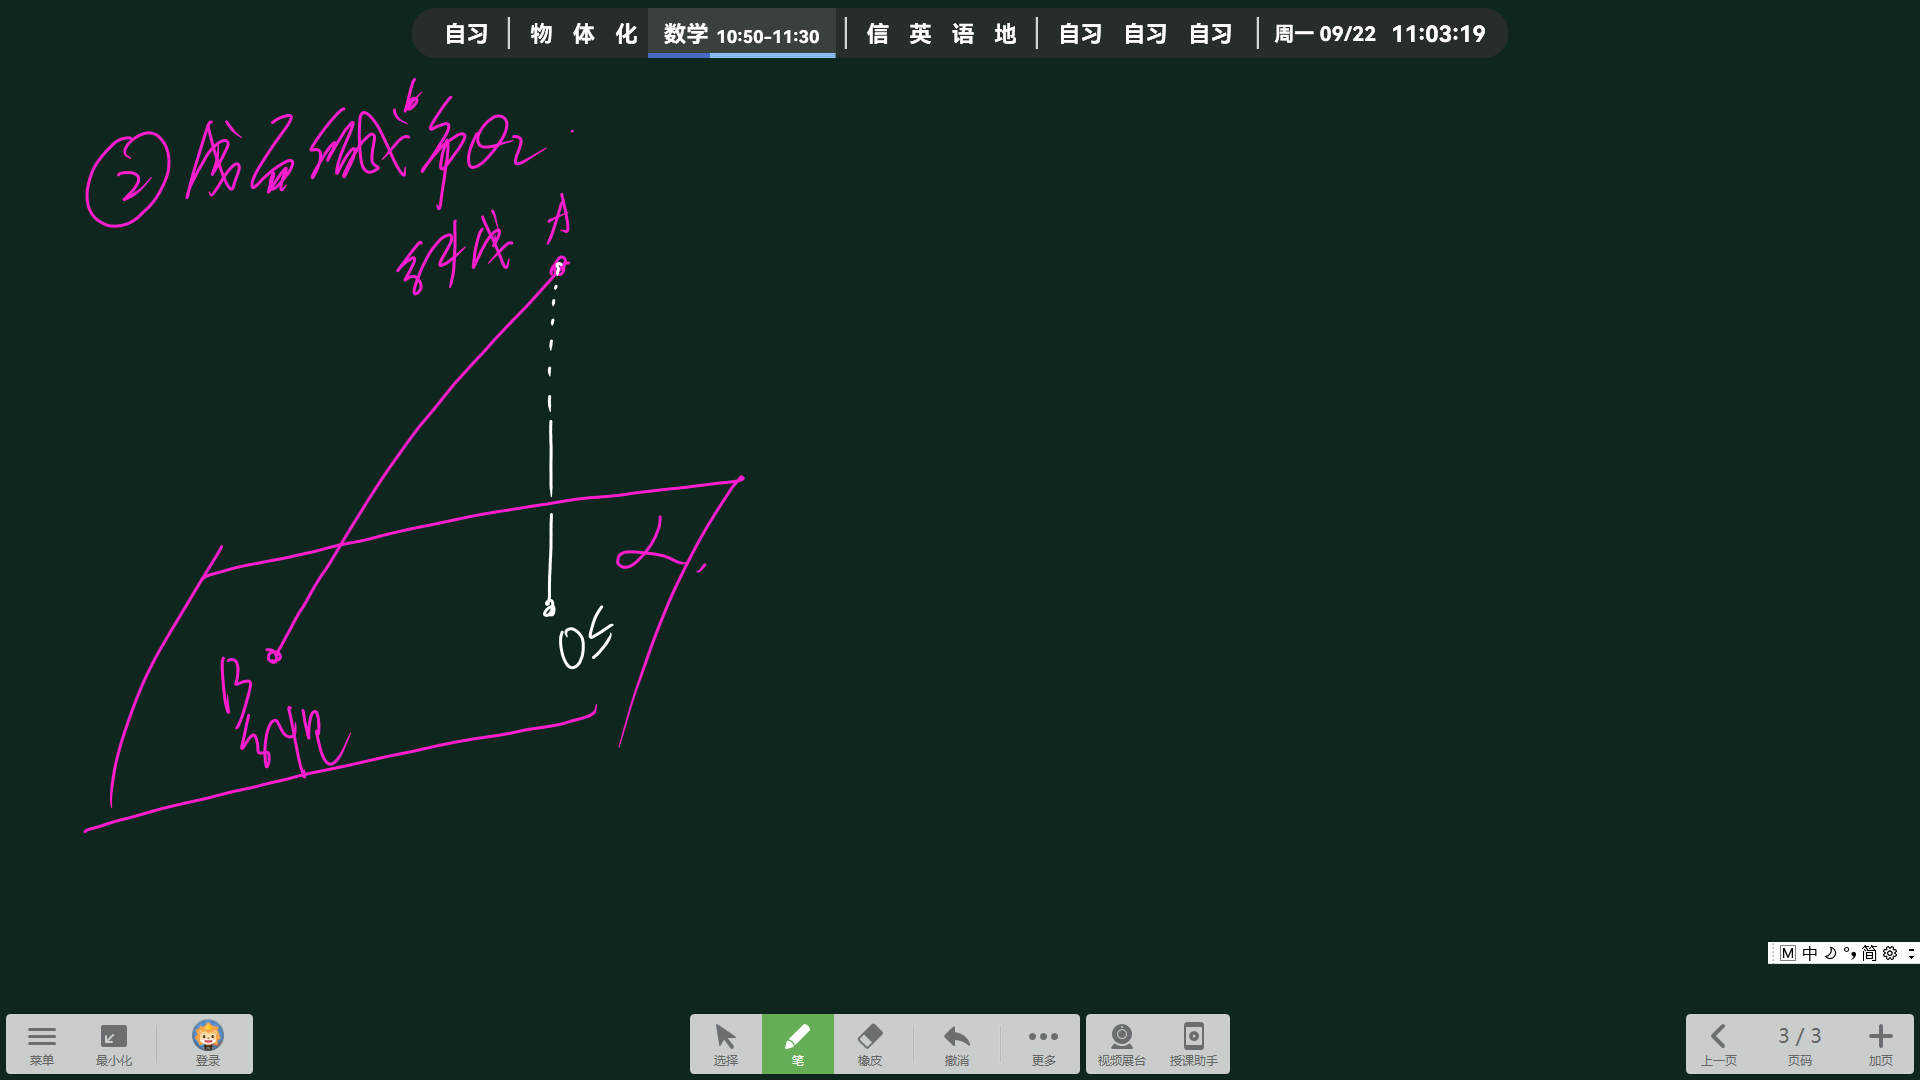 自习 | 物 体 化 数学 10:50-11:30 | 信 英 语 地 | 自习 自习 自习 | 周一 09/22 11:03:19
②线面
斜线 A
α
B
M 中 简
菜单 最小化 登录 选择 笔 橡皮 撤消 更多 视频展台 授课助手 上一页 3 / 3 页码 加页